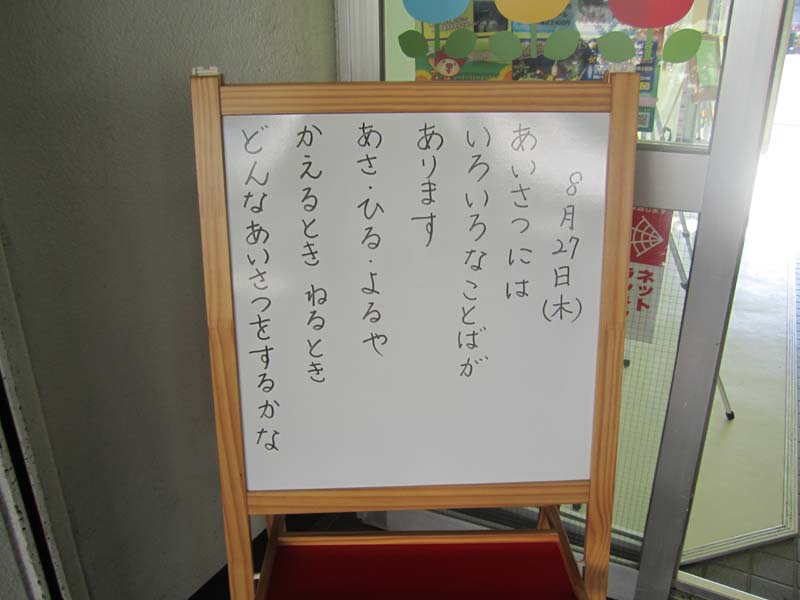 8月27日(木)
あいさつには
いろいろなことばが
あります
あさ・ひる・よるや
かえるとき ねるとき
どんなあいさつをするかな
ネット